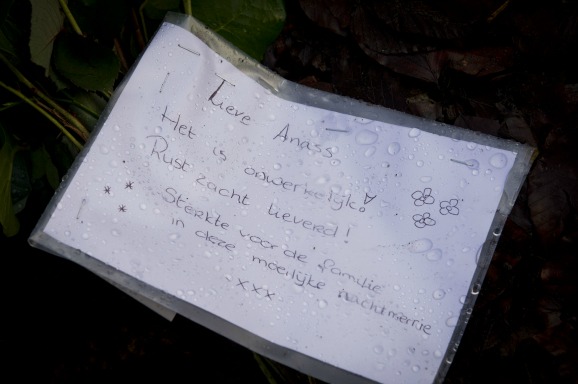 Lieve Anass
Het is onwerkelijk!
Rust zacht lieverd!
Sterkte voor de familie
in deze moeilijke nachtmerrie
xxx